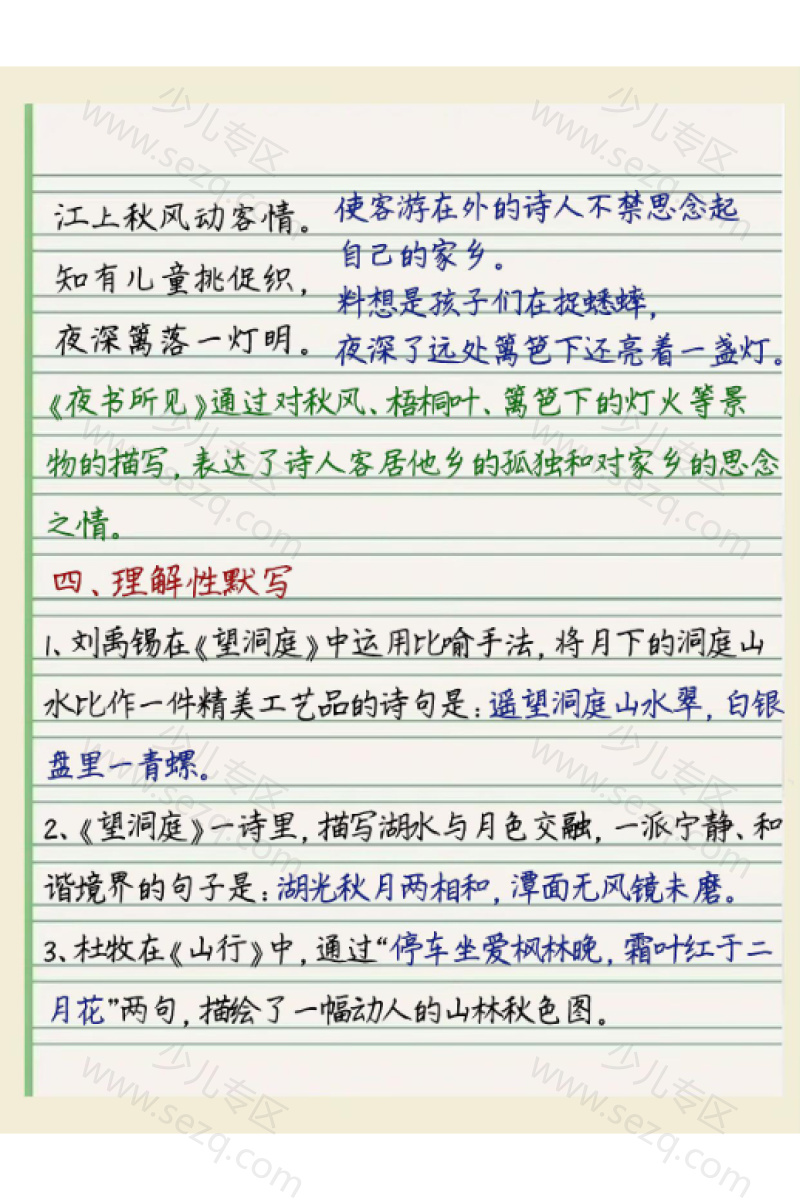 江上秋风动客情。 使客游在外的诗人不禁思念起
自己的家乡。
知有儿童挑促织， 料想是孩子们在捉蟋蟀，
夜深篱落一灯明。 夜深了远处篱笆下还亮着一盏灯。
《夜书所见》通过对秋风、梧桐叶、篱笆下的灯火等景
物的描写，表达了诗人客居他乡的孤独和对家乡的思念
之情。
四、理解性默写
1、刘禹锡在《望洞庭》中运用比喻手法，将月下的洞庭山
水比作一件精美工艺品的诗句是：遥望洞庭山水翠，白银
盘里一青螺。
2、《望洞庭》一诗里，描写湖水与月色交融，一派宁静、和
谐境界的句子是：湖光秋月两相和，潭面无风镜未磨。
3、杜牧在《山行》中，通过“停车坐爱枫林晚，霜叶红于二
月花”两句，描绘了一幅动人的山林秋色图。
少儿专区
www.sezq.com
少儿专区
www.sezq.com
少儿专区
www.sezq.com
少儿专区
www.sezq.com
少儿专区
www.sezq.com
少儿专区
www.sezq.com
少儿专区
www.sezq.com
少儿专区
www.sezq.com